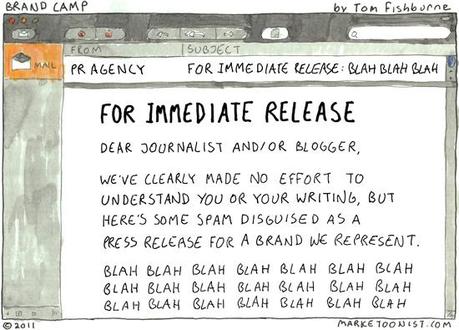 BRAND CAMP
by Tom Fishburne
FROM
SUBJECT
MAIL
PR AGENCY
FOR IMMEDIATE RELEASE: BLAH BLAH BLAH
FOR IMMEDIATE RELEASE
DEAR JOURNALIST AND/OR BLOGGER,
WE'VE CLEARLY MADE NO EFFORT TO
UNDERSTAND YOU OR YOUR WRITING, BUT
HERE'S SOME SPAM DISGUISED AS A
PRESS RELEASE FOR A BRAND WE REPRESENT.
BLAH BLAH BLAH BLAH BLAH BLAH BLAH
BLAH BLAH BLAH BLAH BLAH BLAH BLAH
BLAH BLAH BLAH BLAH BLAH BLAH BLAH
© 2011
MARKETOONIST.COM